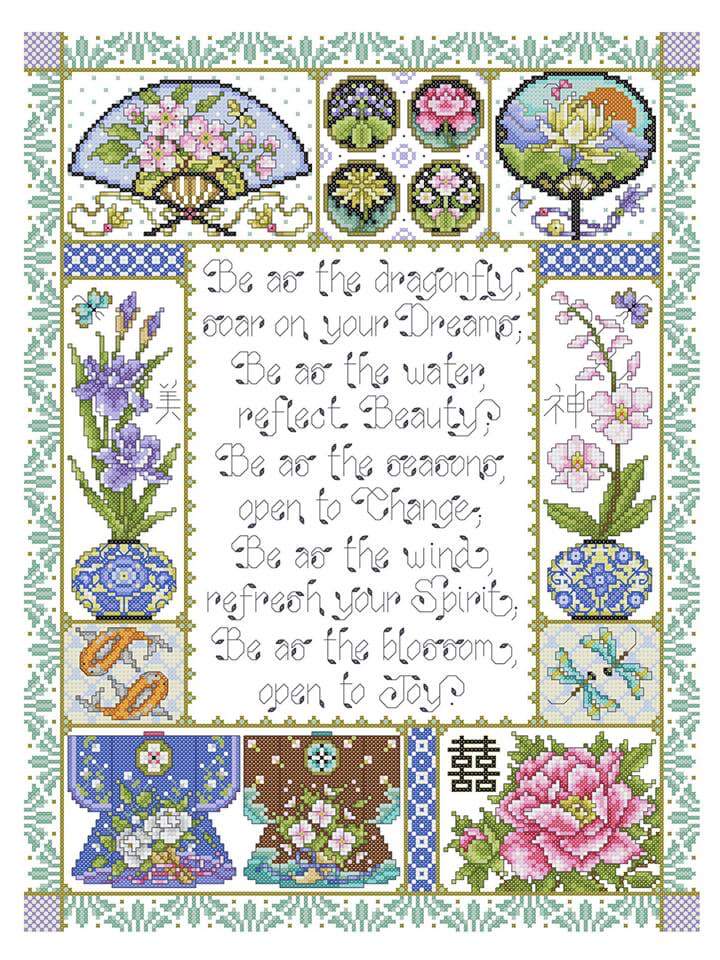 Be as the dragonfly,
soar on your Dreams;
Be as the water,
reflect Beauty;
美
神
Be as the seasons,
open to Change;
Be as the wind,
refresh your Spirit;
Be as the blossom,
open to Joy.
囍